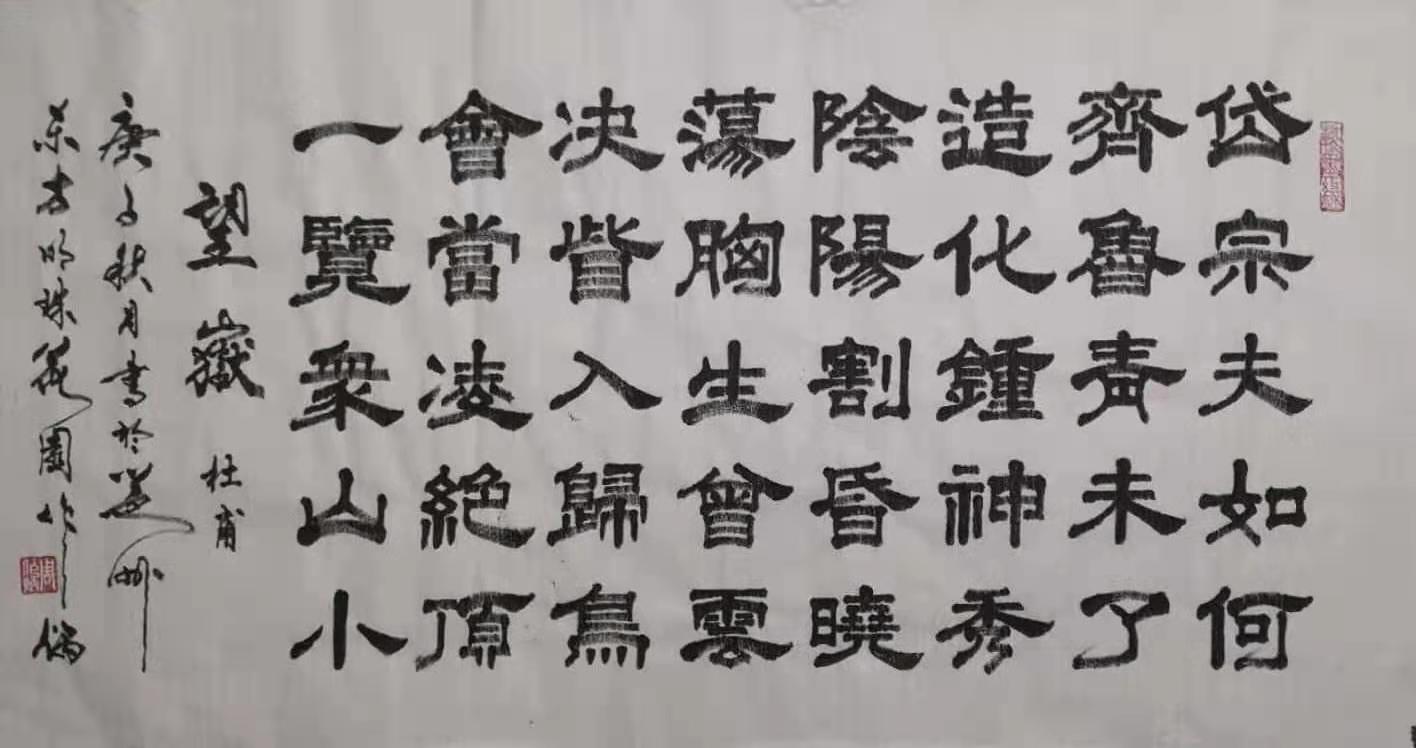 岱宗夫如何
齊魯青未了
造化鍾神秀
陰陽割昏曉
蕩胸生曾雲
决眥入歸鳥
會當凌絕頂
一覽衆山小
望嶽 杜甫
庚子秋月書於亳州
東方明珠花園